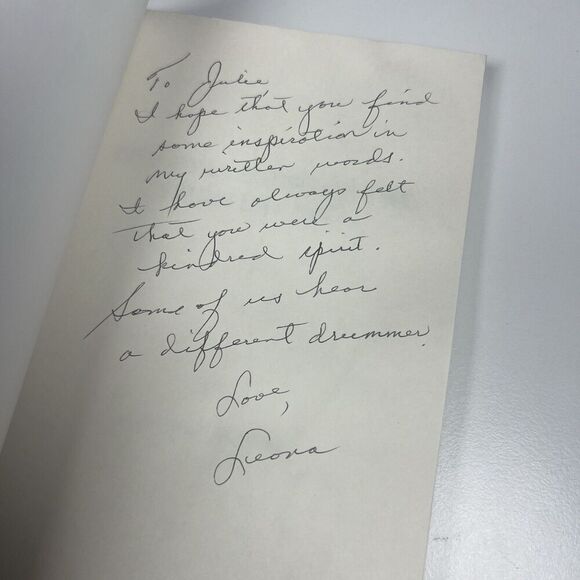 To Julie,
I hope that you find
some inspiration in
my written words.
I have always felt
that you were a
kindred spirit.
Some of us hear
a different drummer.
Love,
Leona